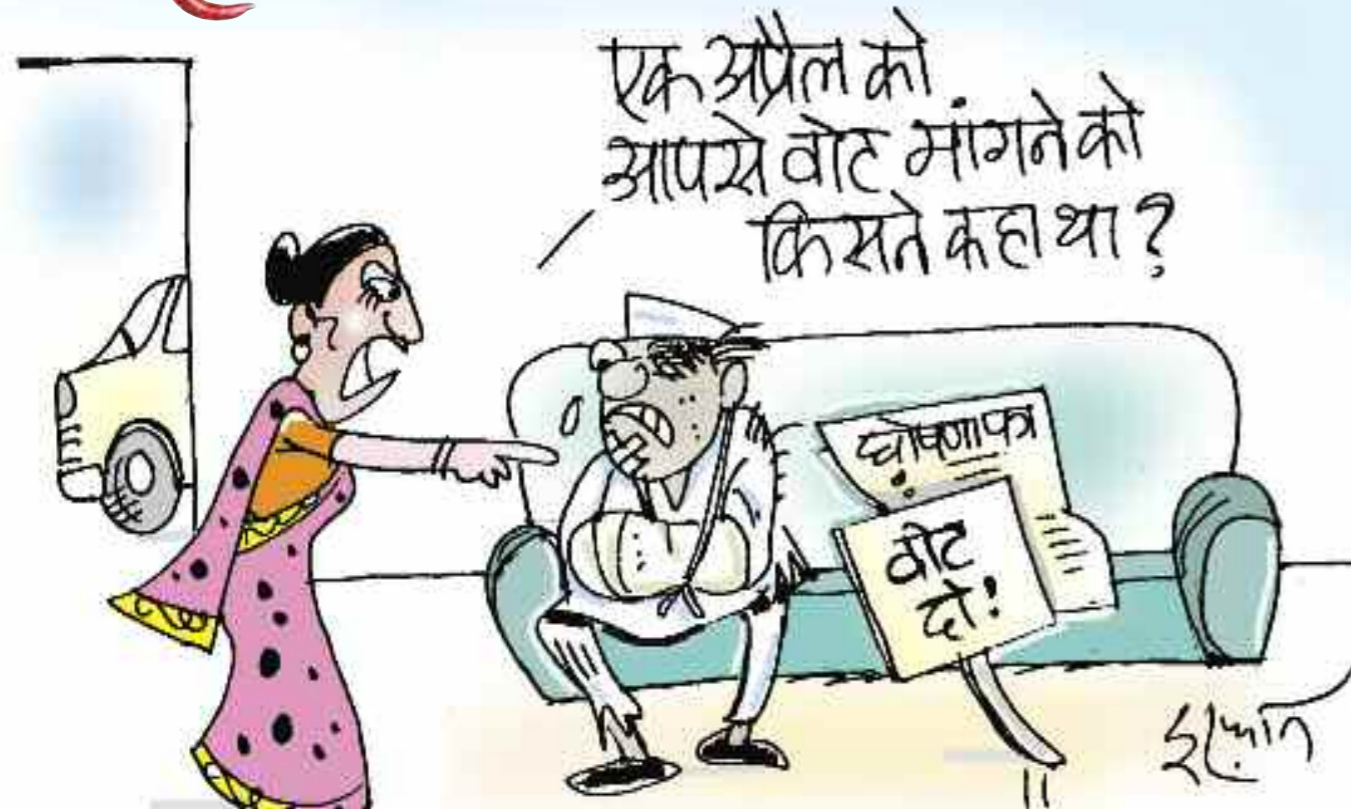 एक अप्रैल को
आपसे वोट मांगने को
किसने कहा था?
घोषणापत्र
वोट
दो!
इरफ़ान